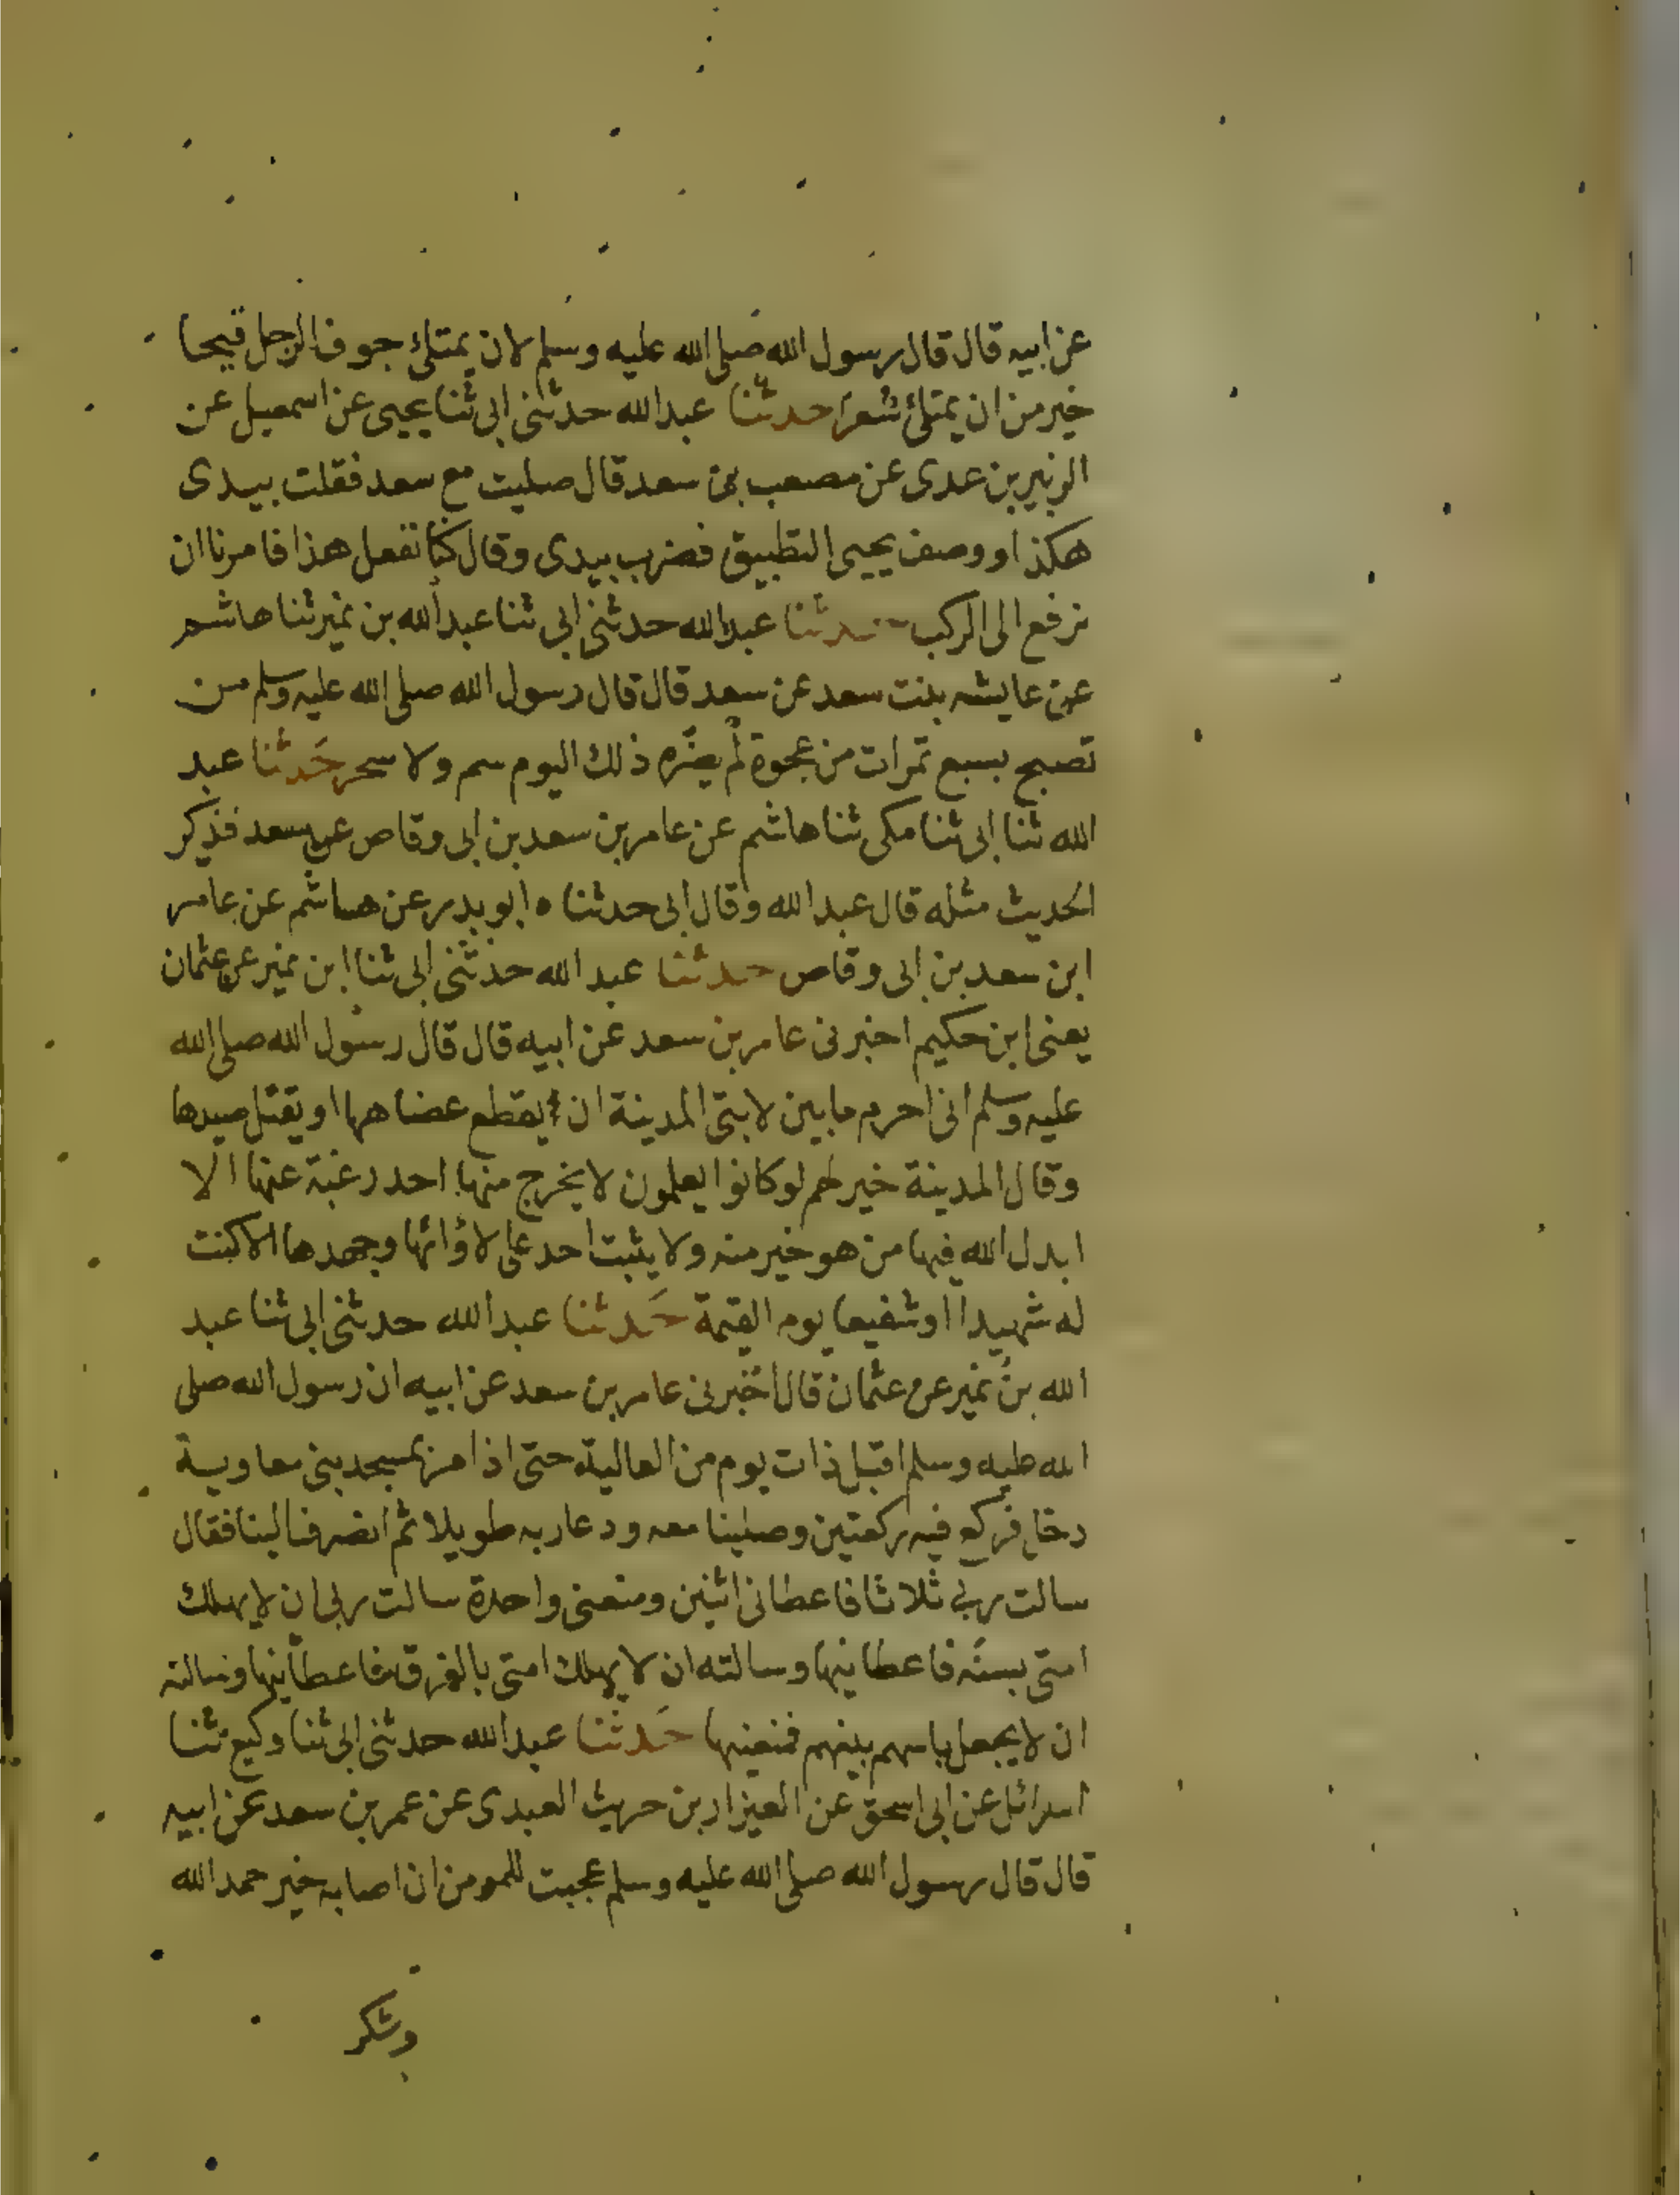 عن ابيه قال قال رسول الله صلى الله عليه وسلم لان يمتلئ جوف الرجل قيحا
خير من ان يمتلئ شعرا حدثنا عبد الله حدثنى ابى ثنا يحيى عن اسمعيل عن
الزبير بن عدى عن مصعب بن سعد قال صليت مع سعد فقلت بيدى
هكذا ووصف يحيى التطبيق فضرب بيدى وقال كنا نفعل هذا فامرنا ان
نرفع الى الركب حدثنا عبد الله حدثنى ابى ثنا عبد الله بن نمير ثنا هاشم
عن عايشه بنت سعد عن سعد قال قال رسول الله صلى الله عليه وسلم من
تصبح بسبع تمرات من عجوة لم يضره ذلك اليوم سم ولا سحر حدثنا عبد
الله ثنا ابى ثنا مكى ثنا هاشم عن عامر بن سعد بن ابى وقاص عن سعد فذكر
الحديث مثله قال عبد الله وقال ابى حدثناه ابو بدر عن هاشم عن عامر
ابن سعد بن ابى وقاص حدثنا عبد الله حدثنى ابى ثنا ابن نمير عن عثمان
يعنى ابن حكيم اخبرنى عامر بن سعد عن ابيه قال قال رسول الله صلى الله
عليه وسلم انى احرم ما بين لابتى المدينة ان يقطع عضاهها او يقتل صيدها
وقال المدينة خير لهم لو كانوا يعلمون لا يخرج منها احد رغبة عنها الا
ابدل الله فيها من هو خير منه ولا يثبت احد على لاؤائها وجهدها الا كنت
له شهيدا او شفيعا يوم القيمة حدثنا عبد الله حدثنى ابى ثنا عبد
الله بن نمير عن عثمان قال اخبرنى عامر بن سعد عن ابيه ان رسول الله صلى
الله عليه وسلم اقبل ذات يوم من العالية حتى اذا مر بمسجد بنى معاوية
دخل فركع فيه ركعتين وصلينا معه ودعا ربه طويلا ثم انصرف الينا فقال
سالت ربى ثلاثا فاعطانى اثنين ومنعنى واحدة سالت ربى ان لا يهلك
امتى بسنه فاعطانيها وسالته ان لا يهلك امتى بالغرق فاعطانيها وسالته
ان لا يجعل باسهم بينهم فمنعنيها حدثنا عبد الله حدثنى ابى ثنا وكيع ثنا
اسرائل عن ابى اسحق عن العيزار بن حريث العبدى عن عمر بن سعد عن ابيه
قال قال رسول الله صلى الله عليه وسلم عجبت للمومن ان اصابه خير حمد الله
وشكر